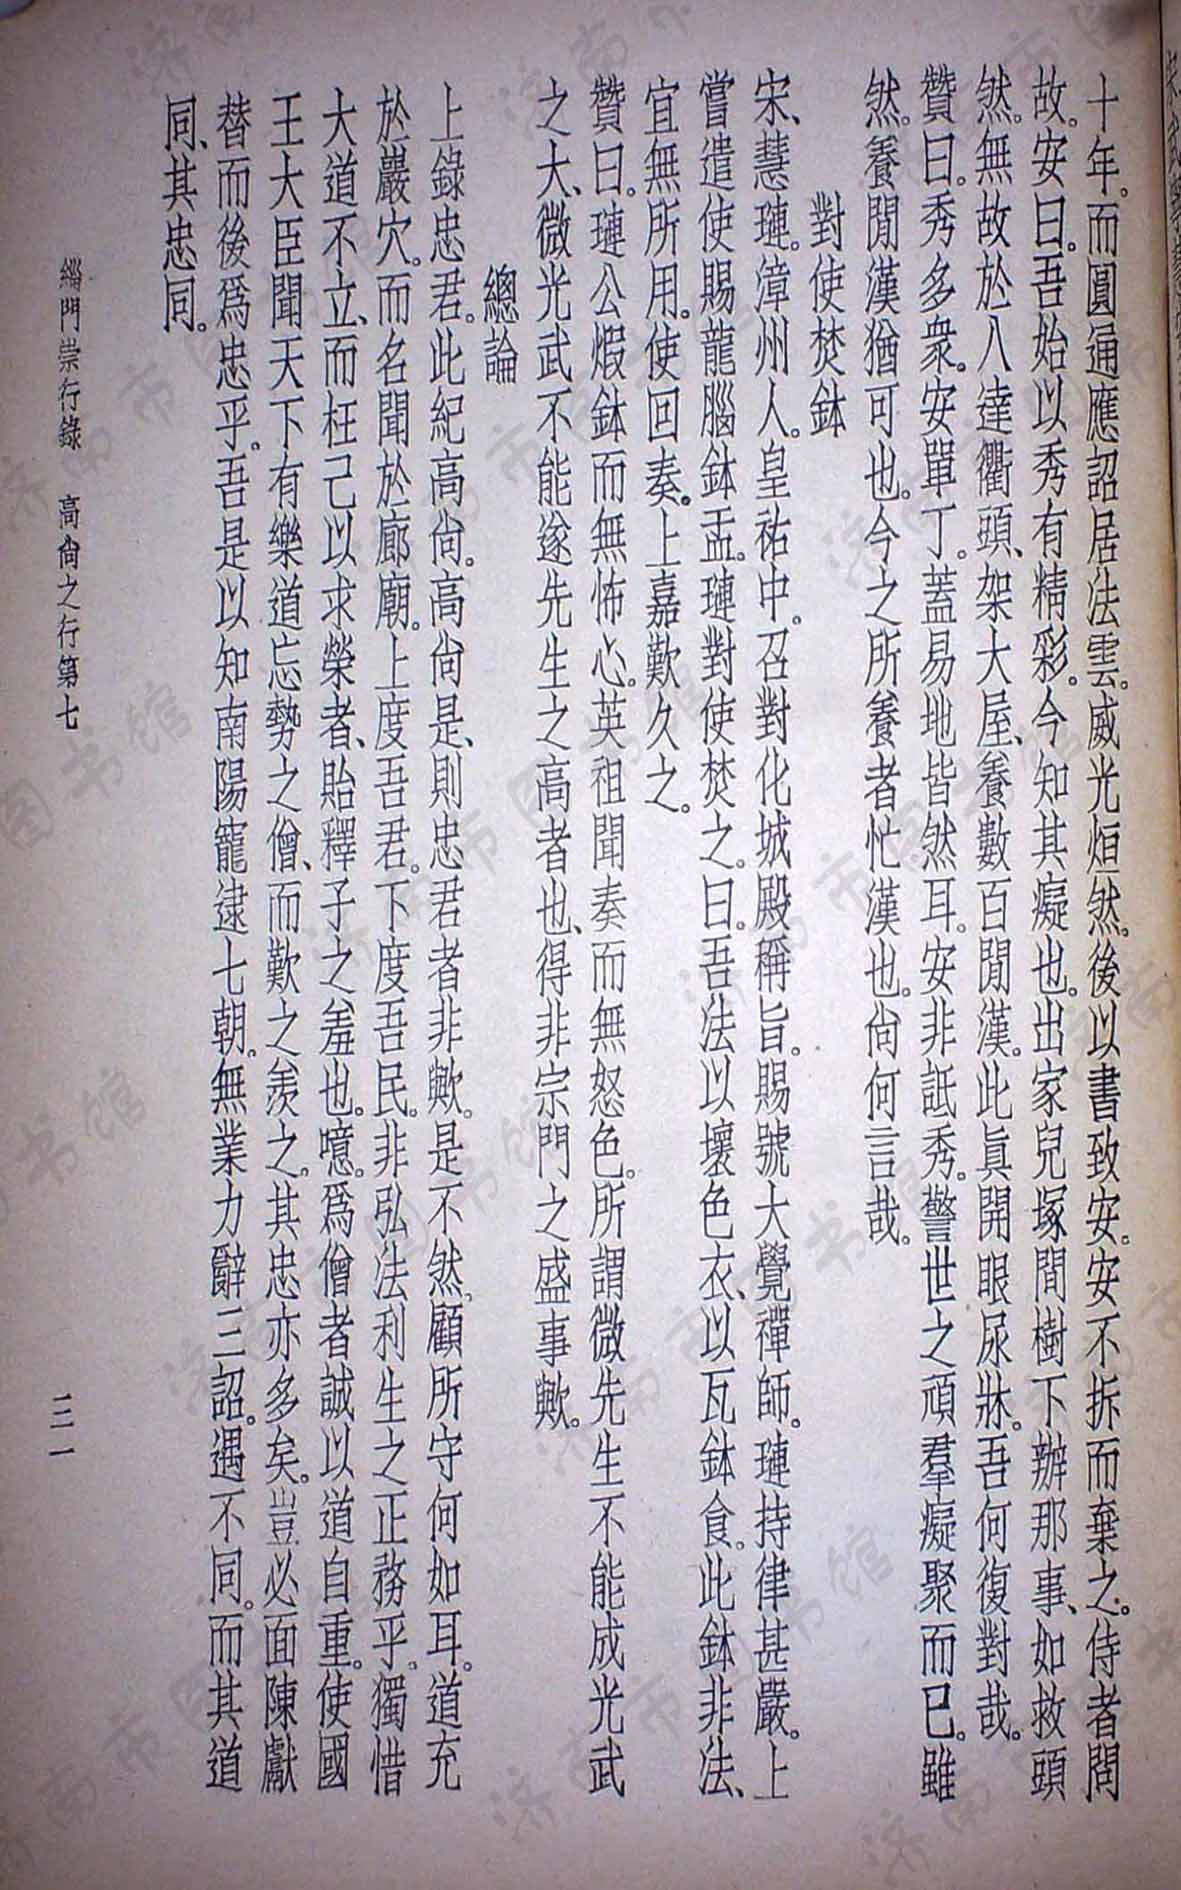 十年。而圓通應詔居法雲。威光烜然。後以書致安。安不拆而棄之。侍者問
故。安曰。吾始以秀有精彩。今知其癡也。出家兒塚間樹下辦那事、如救頭
然。無故於八達衢頭、架大屋、養數百閒漢。此眞開眼尿牀。吾何復對哉。
贊曰。秀多衆。安單丁。蓋易地皆然耳。安非詆秀。警世之頑羣癡聚而已。雖
然。養閒漢猶可也。今之所養者忙漢也。尙何言哉。
對使焚鉢
宋、慧璉。漳州人。皇祐中。召對化城殿稱旨。賜號大覺禪師。璉持律甚嚴。上
嘗遣使賜龍腦鉢盂。璉對使焚之。曰。吾法以壞色衣、以瓦鉢食。此鉢非法、
宜無所用。使回奏。上嘉歎久之。
贊曰。璉公煅鉢而無怖心。英祖聞奏而無怒色。所謂微先生不能成光武
之大、微光武不能遂先生之高者也、得非宗門之盛事歟。
總論
上錄忠君。此紀高尙。高尙是、則忠君者非歟。是不然。顧所守何如耳。道充
於巖穴。而名聞於廊廟。上度吾君。下度吾民。非弘法利生之正務乎。獨惜
大道不立、而枉己以求榮者、貽釋子之羞也。噫。爲僧者誠以道自重。使國
王大臣聞天下有樂道忘勢之僧、而歎之羨之。其忠亦多矣。豈必面陳獻
替而後爲忠乎。吾是以知南陽寵逮七朝。無業力辭三詔。遇不同。而其道
同、其忠同。
緇門崇行錄　高尙之行第七
三一
济南市图书馆